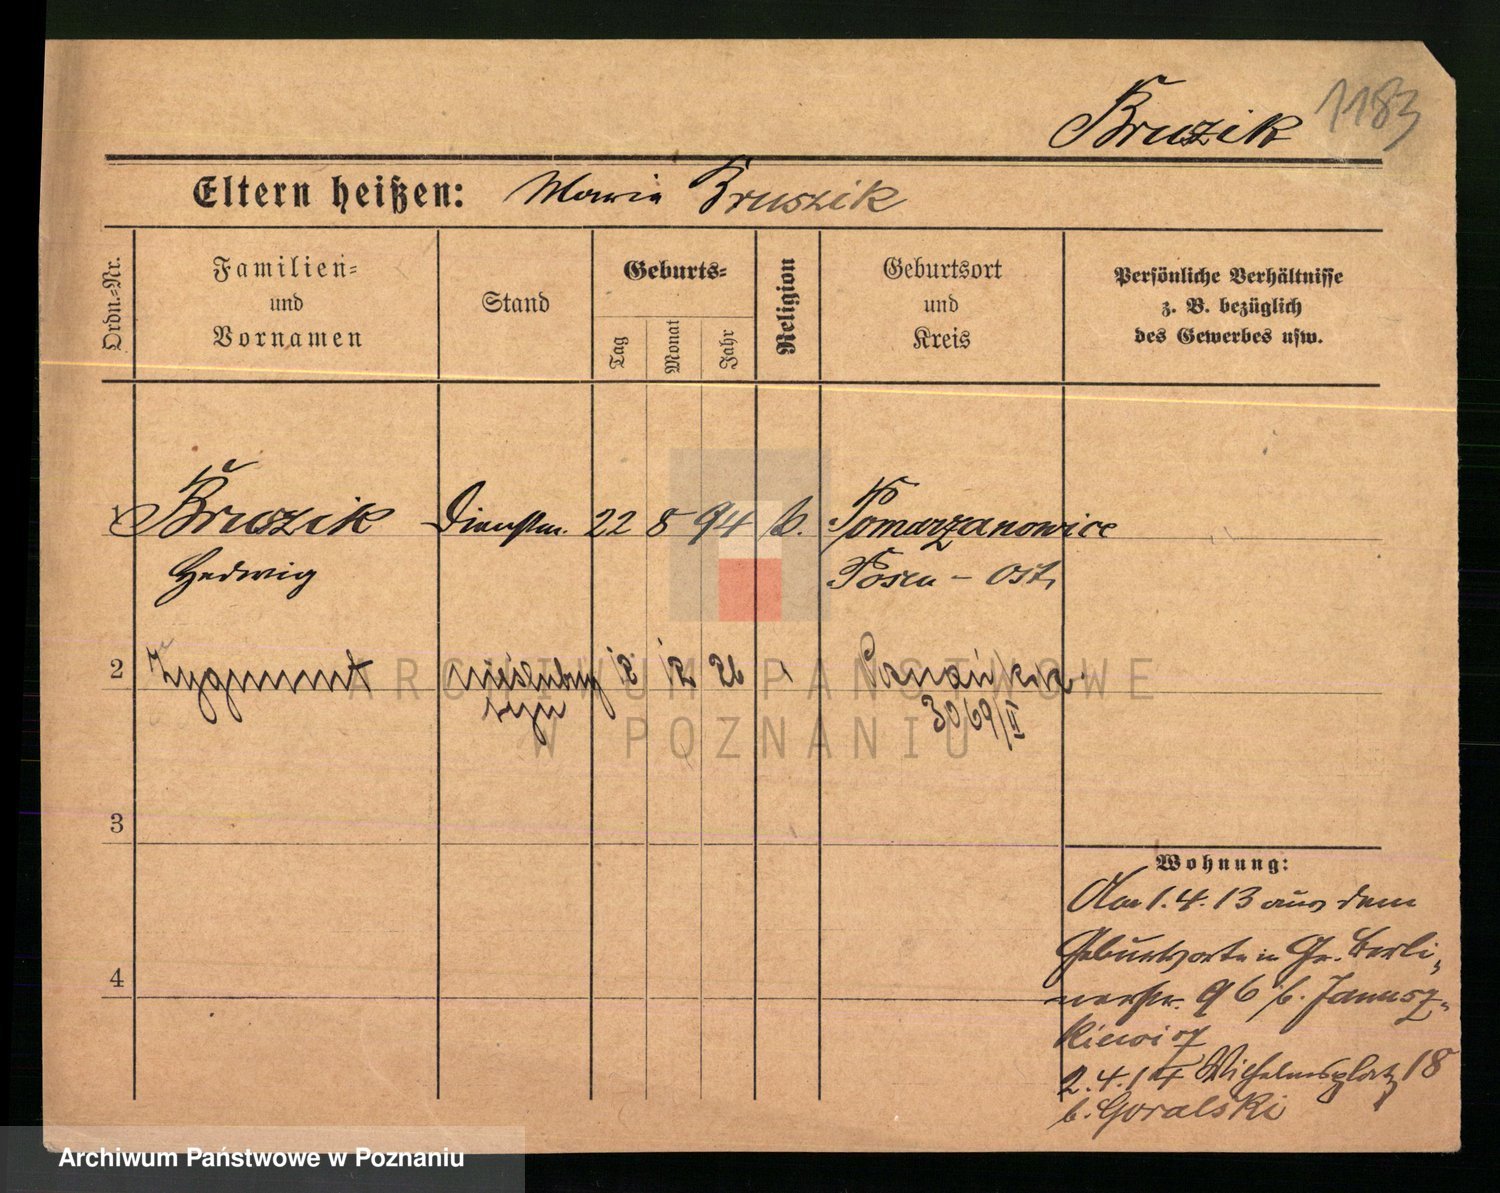 Bruzik 1183
Eltern heißen: Maria Bruszik
Ordn.=Nr.
Familien=
und
Vornamen
Stand
Geburts=
Tag
Monat
Jahr
Religion
Geburtsort
und
Kreis
Persönliche Verhältnisse
z. B. bezüglich
des Gewerbes usw.
1 Bruszik Dienstm. 22 8 94 k. Pomarzanowice
Hedwig Posen - Ost.
2 Zygmunt nieślubny 12 26 Poznań
syn 3069/II
3
4
Wohnung:
1.4.13 aus dem
Geburtsorte in Gr. Berli-
nerstr. 96 b. Janusz-
kiewicz
2.4.14 Wilhelmsplatz 18
b. Goralski
ARCHIWUM PAŃSTWOWE
W POZNANIU
Archiwum Państwowe w Poznaniu